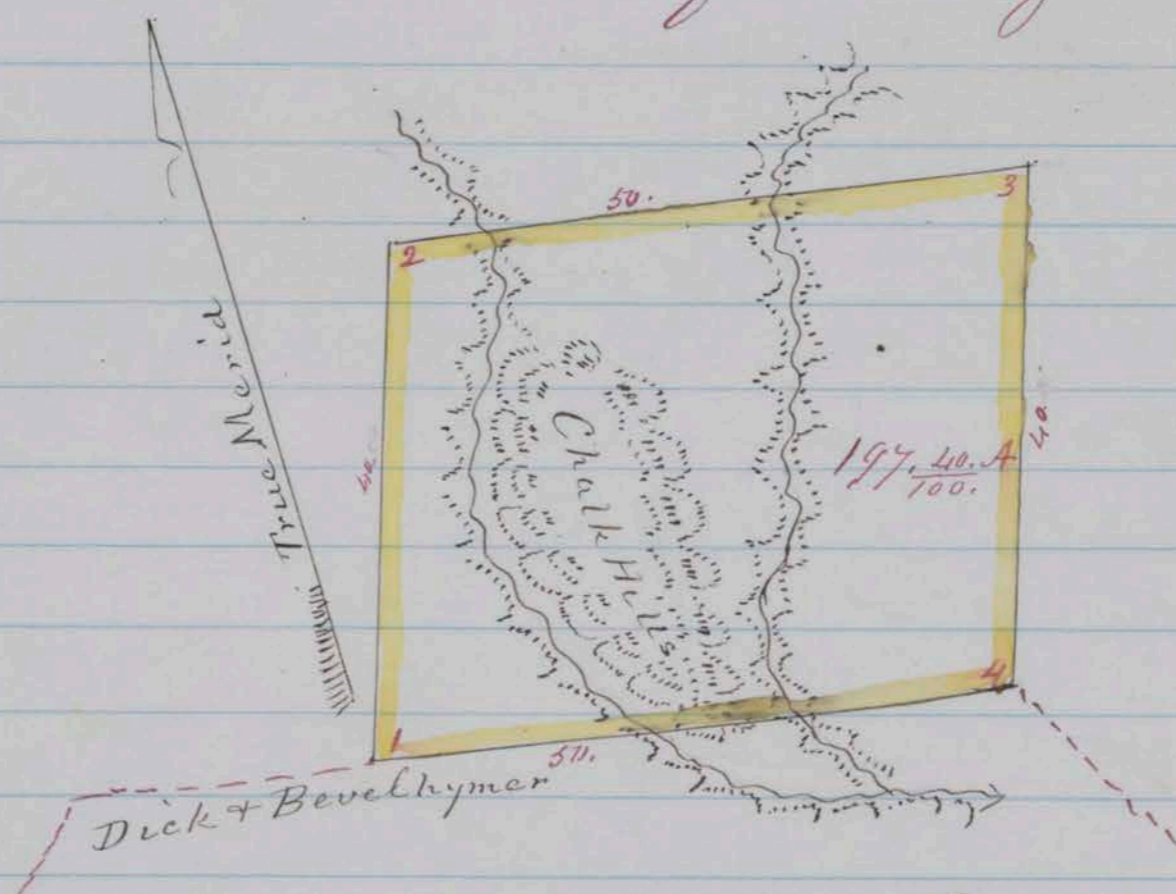 50.
2
3
True Merid
40.
Chalk Hills
197. 40/100. A
40.
1
4
50.
Dick + Bevelhymer